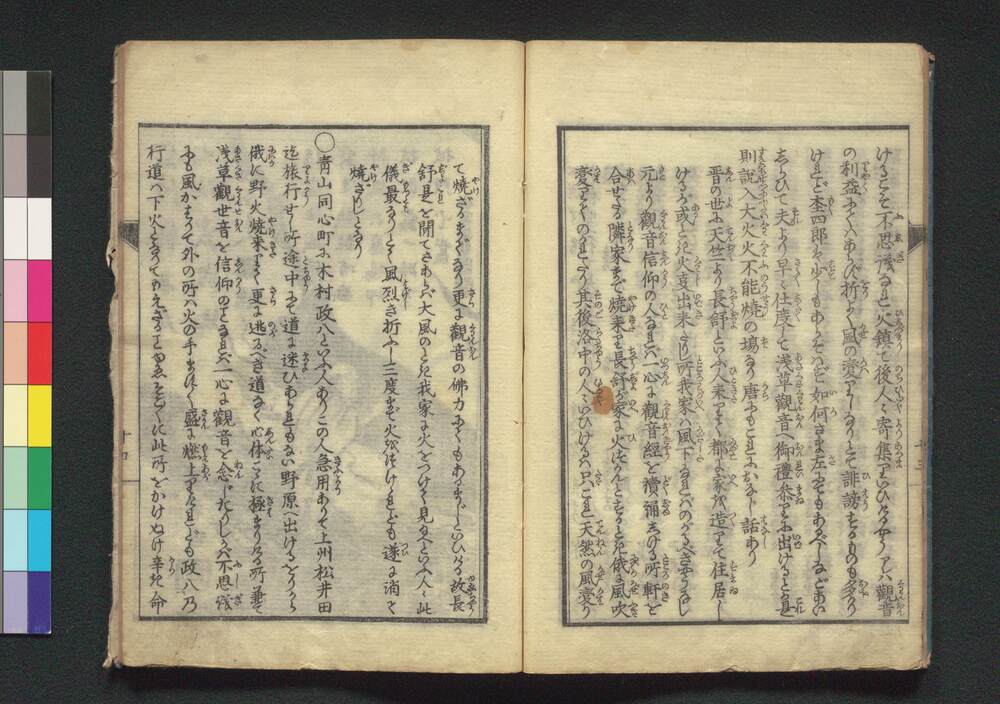 けるこそ不思議なれ火鎮て後人々寄集りいひけるやうハ観音
の利益にてハあらじ折よく風の変りしなりとて誹謗するものも多かり
けれど杢四郎ハ少しもあらそハず如何さま左にてもあるべしなどあい
しらひて夫より早く仕度して浅草観音へ御禮参りに出けるとぞ是
則説入大火火不能焼の場なり唐にもこれにおなじ話あり
晋の世に天竺より長舒といふ人来りて都に家を造りて住居し
けるが或とき火事出来たり所我家ハ風下なれバのがるべきやうなし
元より観音信仰の人なれバ一心に観音経を読誦しける所軒を
合せたる隣家まで焼来り長舒が家に火うつらんとするとき俄に風吹
変りてのこれり其後洛中の人々いひけるハ只これ天然の風変り
て焼ざるまでなり更に観音の佛力にてもあるまじといひける故長
舒是を聞てさあらバ大風のとき我家に火をつけて見るべしといふ人々此
儀最なりとて風烈き折ふし三度まで火をつけけれども遂に消て
焼ざりしとなり
〇青山同心町に木村政八といふ人ありこの人急用ありて上州松井田
迄旅行せし所途中にて道に迷ひあられもない野原へ出けるをりから
俄に野火焼来りて更に逃べき道なく心体こゝに極まりける所兼て
浅草観世音を信仰のことなれバ一心に観音を念じたりしバ不思議
にも風かはりて外の所ハ火の手ますます盛に燃上りけれども政八の
行道ハ下火となりてもえざるゆゑやうやくに此所をかけぬけ辛き命
十三
十四